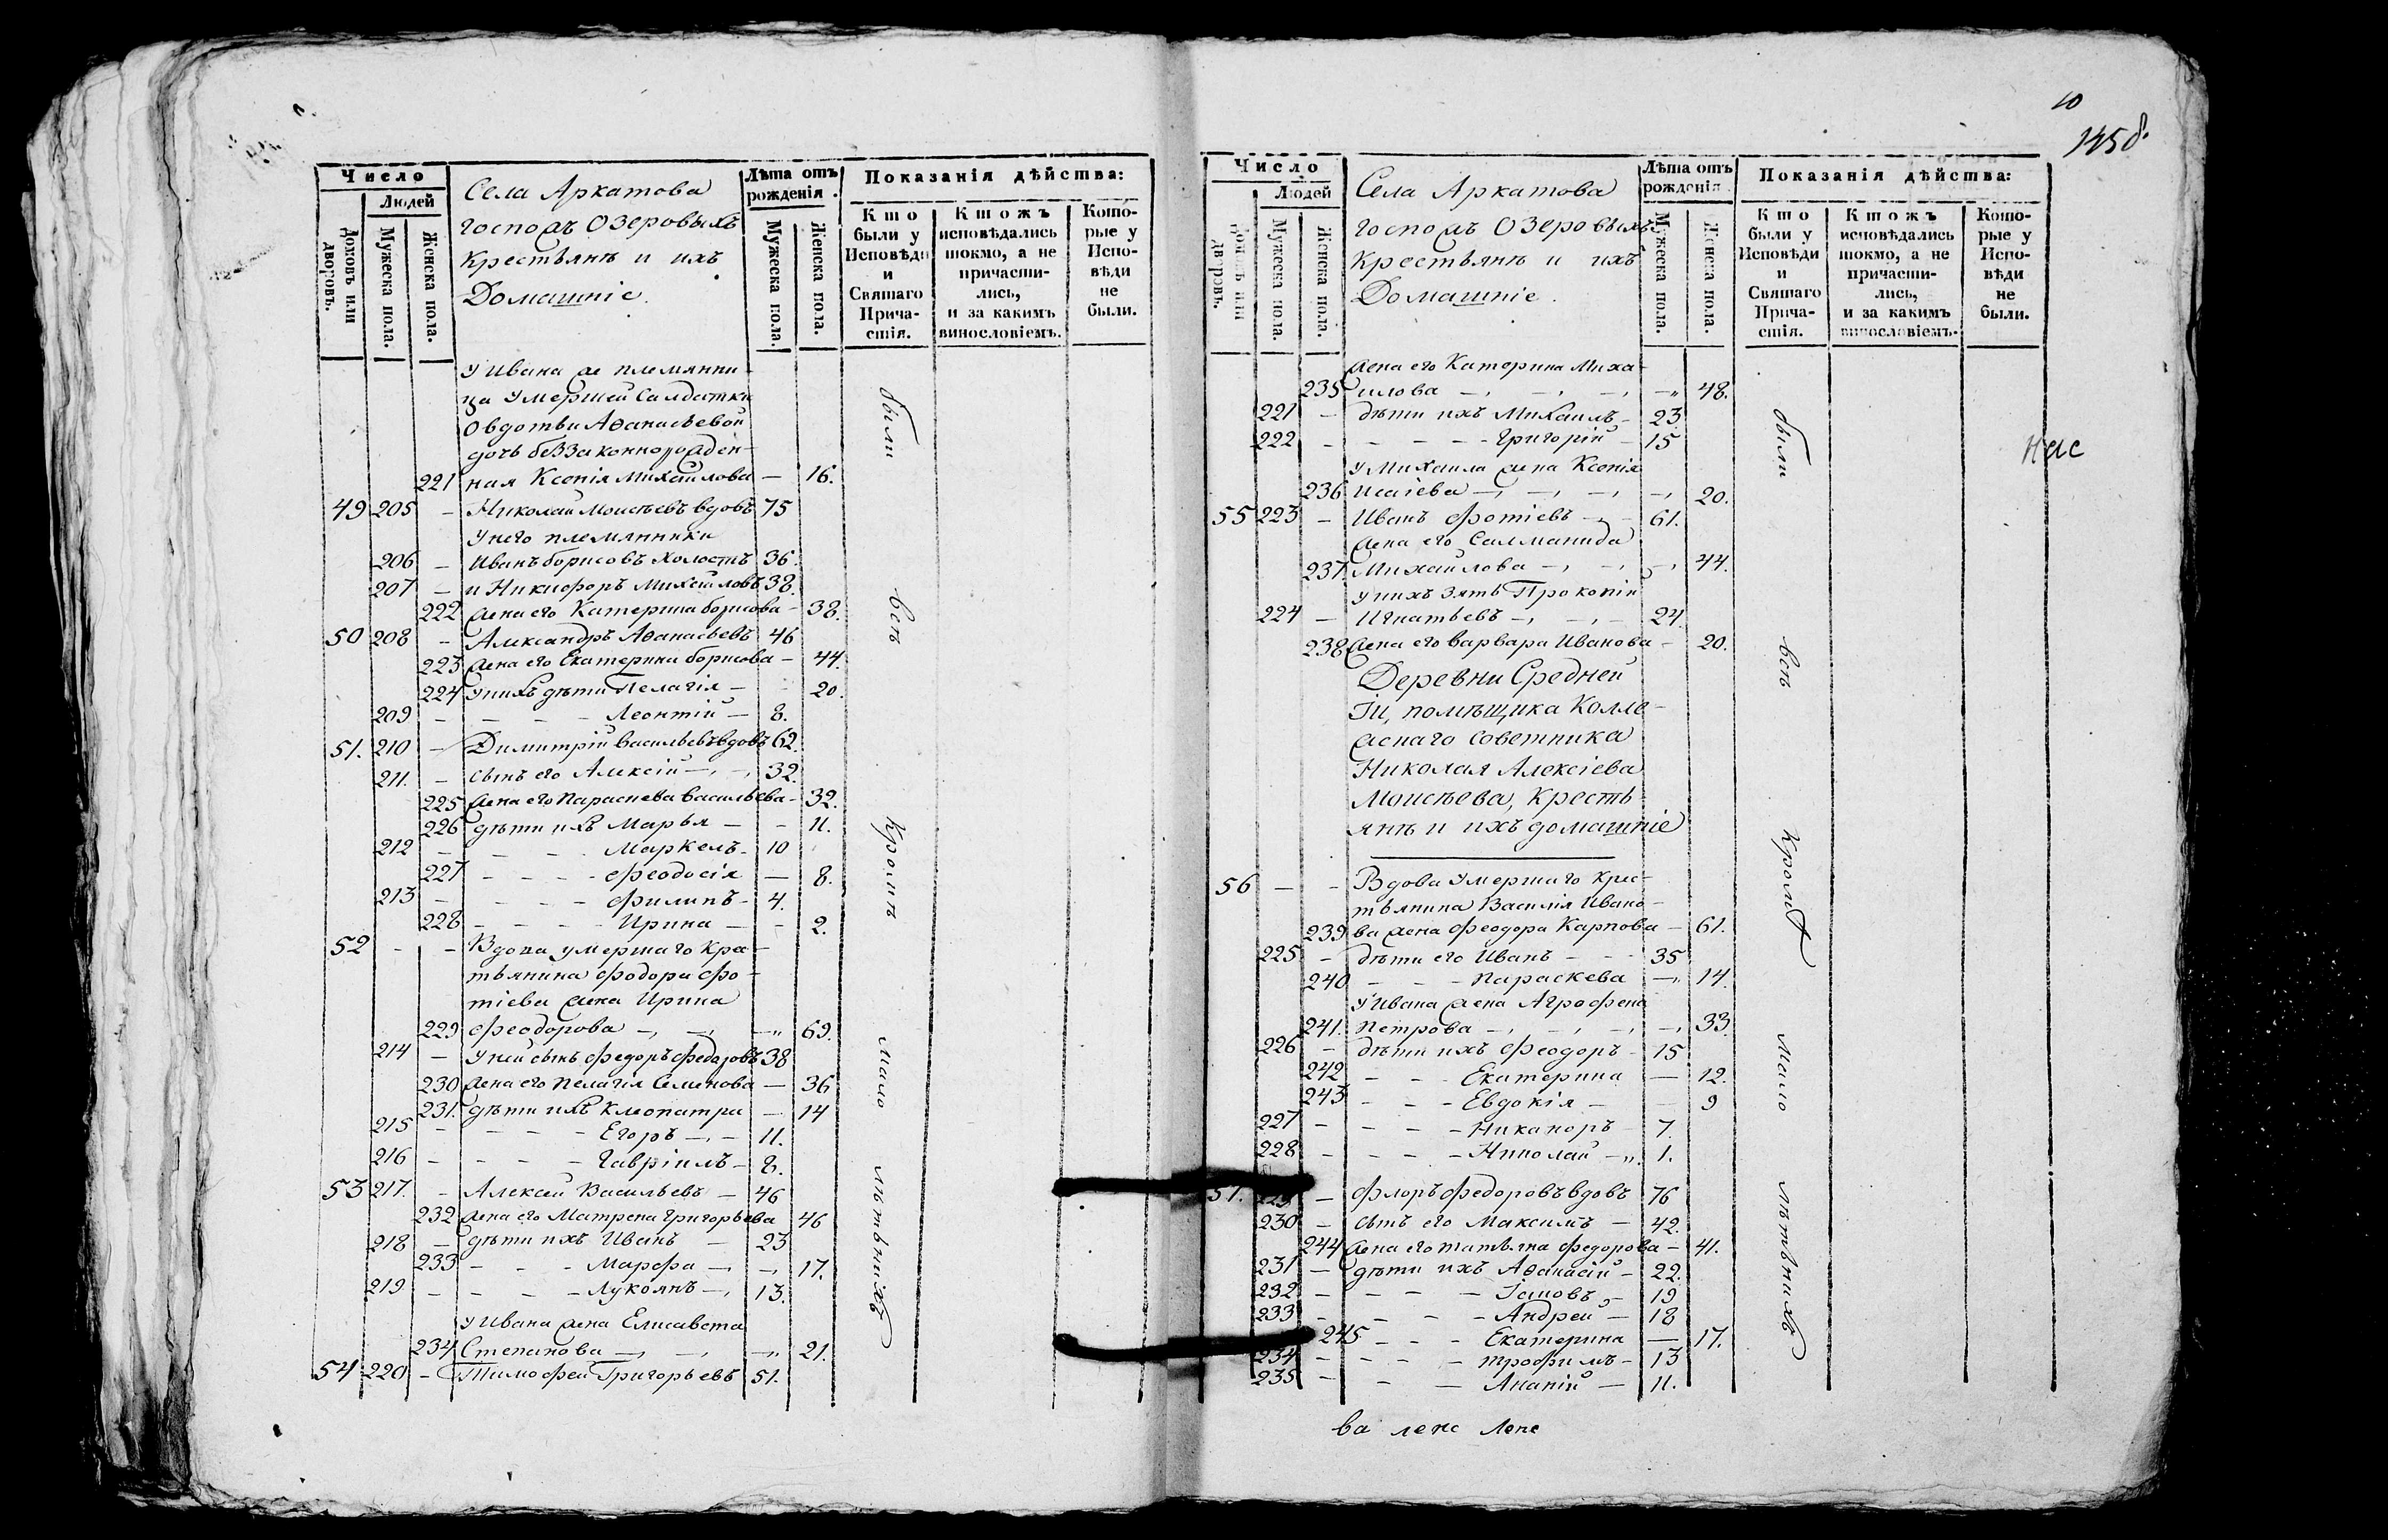 Число
Людей
домовъ или дворовъ.
Мужеска пола.
Женска пола.
Села Аркатова
господъ Озеровыхъ
Крестьянѣ и ихъ
Домашніе.
Лѣта отъ рожденія.
Мужеска пола.
Женска пола.
Показанія дѣйства:
Кто были у Исповѣди и Святаго Причастія.
Ктожъ исповѣдались токмо, а не причастились, и за какимъ винословіемъ.
Которые у Исповѣди не были.
У Ивана же племянни-
ца Умершей Салдатки
Овдотьи Аѳанасьевой
дочь беззаконнорожден-
221 ная Ксенія Михайлова — 16.
49 205 - Николай Моисѣевъ вдовъ 75
У него племянники
206 - Иванъ борисовъ Холостъ 36.
207 - и Никифоръ Михайловъ 38.
222 жена его Катерина борисова - 38.
50 208 - Александръ Аѳанасьевъ 46
223 жена его Екатерина борисова - 44.
224 у нихъ дѣти Пелагія - - 20.
209 - - - - Леонтій - 8.
51. 210 - Димитрій васильевъ вдовъ 62.
211. - сынъ его Алексій -, -, 32.
225 жена его Параскева васильева - 32.
226 дѣти ихъ Марья - - 11.
212 - - - - Маркелъ - 10
227 - - - - Феодосія - 8.
213 - - - - Филипъ - 4.
228 - - - - Ирина - - 2.
52 - - Вдова умершаго Крес-
тьянина Фодора Фо-
тіева жена Ирина
229 Феодорова -, -, -„ 69.
214 - У ней сынъ Федоръ Федоровъ 38
230 жена его Пелагія Семенова - 36
231. дѣти ихъ Клеопатра - 14
215 - - - - Егоръ -, - 11.
216 - - - - Гавріилъ - 8.
53 217. - Алексей Васильевъ - 46
232 жена его Матрена Григорьева 46
218 - дѣти ихъ Иванъ - 23
233 - - - Марфа -, -, 17.
219 - - - - Лукоянъ -, 13.
У Ивана жена Елисавета
234 Степанова -, -, -„ 21.
54 220 - Тимофей Григорьевъ 51.
были всѣ Кромѣ мало лѣтнихъ
10
145 об.
Число
Людей
домовъ или дворовъ.
Мужеска пола.
Женска пола.
Села Аркатова
господъ Озеровыхъ
Крестьянѣ и ихъ
Домашніе.
Лѣта отъ рожденія.
Мужеска пола.
Женска пола.
Показанія дѣйства:
Кто были у Исповѣди и Святаго Причастія.
Ктожъ исповѣдались токмо, а не причастились, и за какимъ винословіемъ.
Которые у Исповѣди не были.
жена его Катерина Миха-
235 илова -, -, -, -„ 48.
221 - дѣти ихъ Михаилъ - 23
222 - - - - - Григорій - 15
У Михаила жена Ксенія
236 Исаіева -, -, -, -, 20.
55 223 - Иванъ Фотіевъ -, - 61.
жена его Салманида
237 Михайлова -, -, -, 44.
у нихъ зять Прокопій
224 - Игнатьевъ -, -, - 24.
238 жена его варвара Иванова - 20.
Деревни Средней
Іи, помѣщика Колле-
жскаго советника
Николая Алексіева
Моисѣева, Кресть-
янѣ и ихъ домашніе
56 - - Вдова Умершаго Крес-
тьянина Василія Ивано-
239 ва жена Феодора Карпова - 61.
225 - дѣти его Иванъ - - - 35
240 - - - Параскева -„ 14.
У Ивана жена Агрофена
241. Петрова -, -, -, -, 33.
226 - дѣти ихъ Феодоръ - 15
242 - - Екатерина - 12.
243 - - - Евдокія - - 9
227 - - - - Никаноръ - 7.
228 - - - - Николай -„ 1.
57. 229 - Флоръ Федоровъ вдовъ 76
230 - сынъ его Максимъ - 42.
244 жена его татьяна Федорова - 41.
231 - дѣти ихъ Аѳанасій - 22.
232 - - - - Іаковъ - 19
233 - - - - Андрей - 18
245 - - - Екатерина - 17.
234 - - - - трофимъ - 13
235 - - - Ананій - 11.
были всѣ Кромѣ мало лѣтнихъ